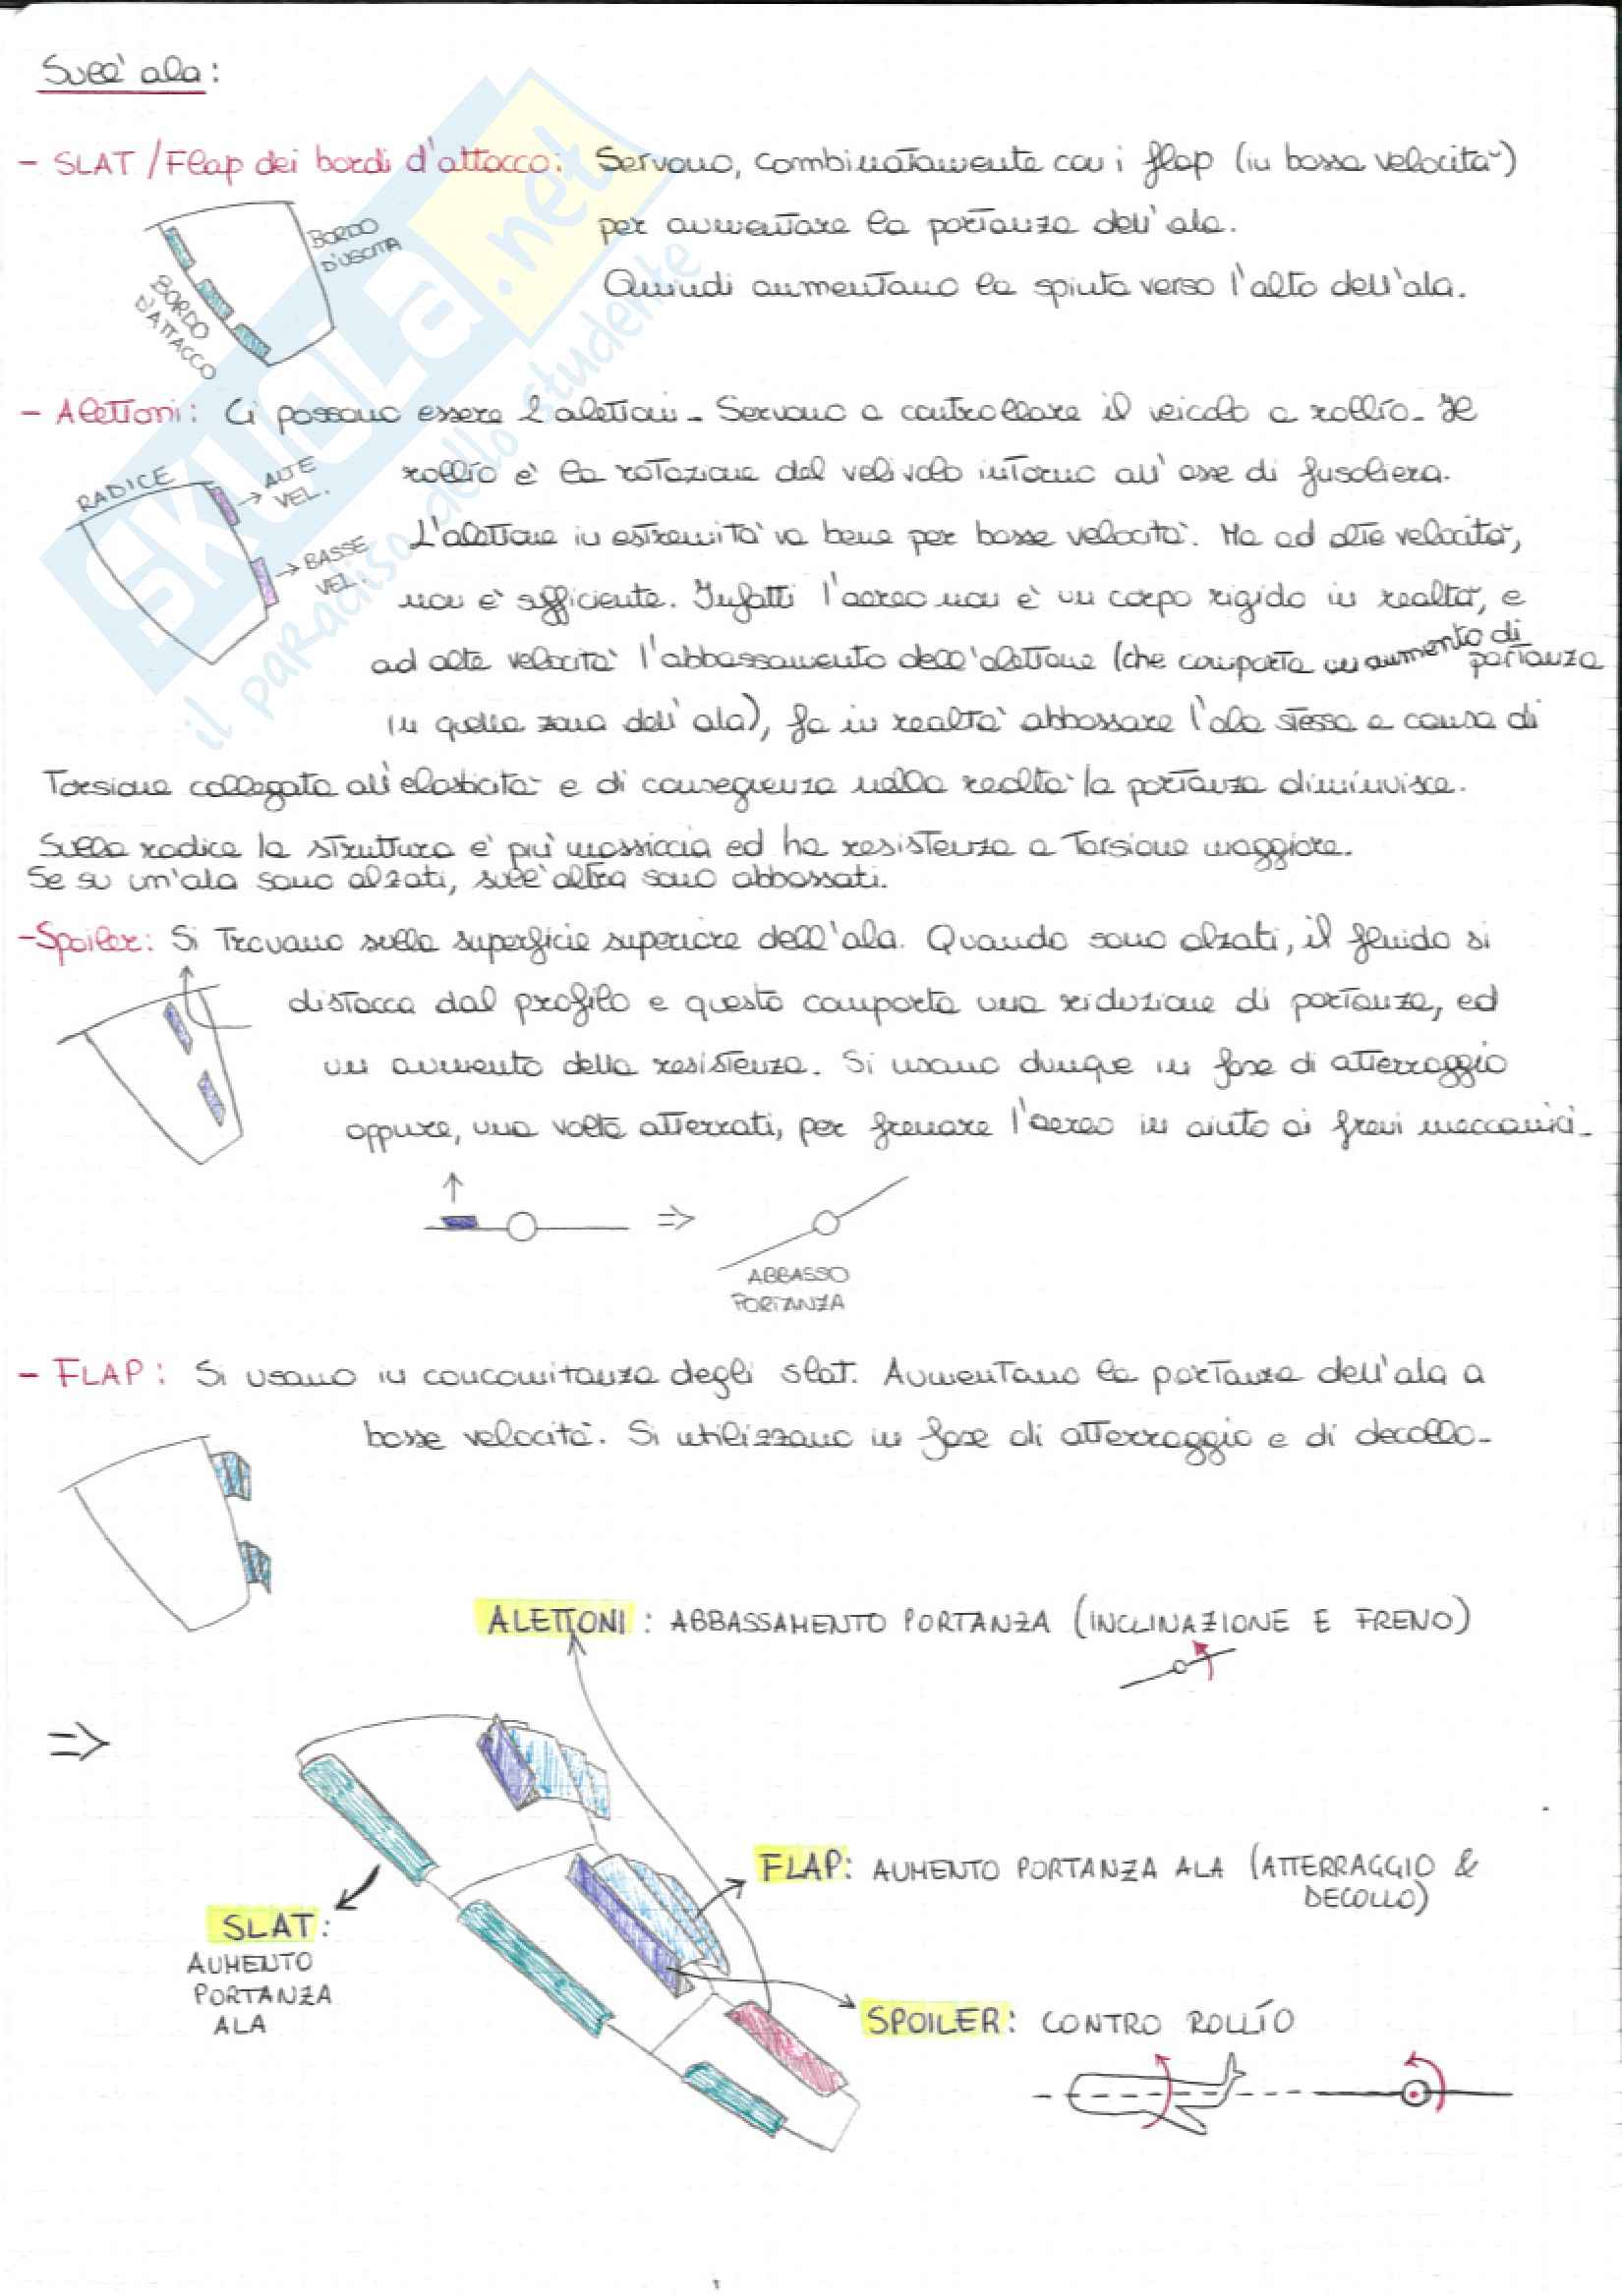 Sull'ala:
- SLAT / Flap dei bordi d'attacco: Servono, combinatamente con i flap (in bassa velocità)
per aumentare la portanza dell'ala.
Quindi aumentano la spinta verso l'alto dell'ala.
BORDO D'USCITA
BORDO D'ATTACCO
- Alettoni: Ci possono essere 2 alettoni. Servono a controllare il veicolo a rollío. Il
rollío è la rotazione del velivolo intorno all'asse di fusoliera.
RADICE
→ ALTE VEL.
→ BASSE VEL.
L'alettone in estremità va bene per basse velocità. Ma ad alte velocità,
non è sufficiente. Infatti l'aereo non è un corpo rigido in realtà, e
ad alte velocità l'abbassamento dell'alettone (che comporta un aumento di portanza
in quella zona dell'ala), fa in realtà abbassare l'ala stessa a causa di
Torsione collegata all'elasticità e di conseguenza nella realtà la portanza diminuisce.
Sulla radice la struttura è più massiccia ed ha resistenza a Torsione maggiore.
Se su un'ala sono alzati, sull'altra sono abbassati.
- Spoiler: Si Trovano sulla superficie superiore dell'ala. Quando sono alzati, il fluido si
distacca dal profilo e questo comporta una riduzione di portanza, ed
un aumento della resistenza. Si usano dunque in fase di atterraggio
oppure, una volta atterrati, per frenare l'aereo in aiuto ai freni meccanici.
⇒
ABBASSO
PORTANZA
- FLAP: Si usano in concomitanza degli slat. Aumentano la portanza dell'ala a
basse velocità. Si utilizzano in fase di atterraggio e di decollo.
ALETTONI: ABBASSAMENTO PORTANZA (INCLINAZIONE E FRENO)
⇒
FLAP: AUMENTO PORTANZA ALA (ATTERRAGGIO &
DECOLLO)
SLAT:
AUMENTO
PORTANZA
ALA
SPOILER: CONTRO ROLLÍO
SKUOLA.net
il paradiso dello studente